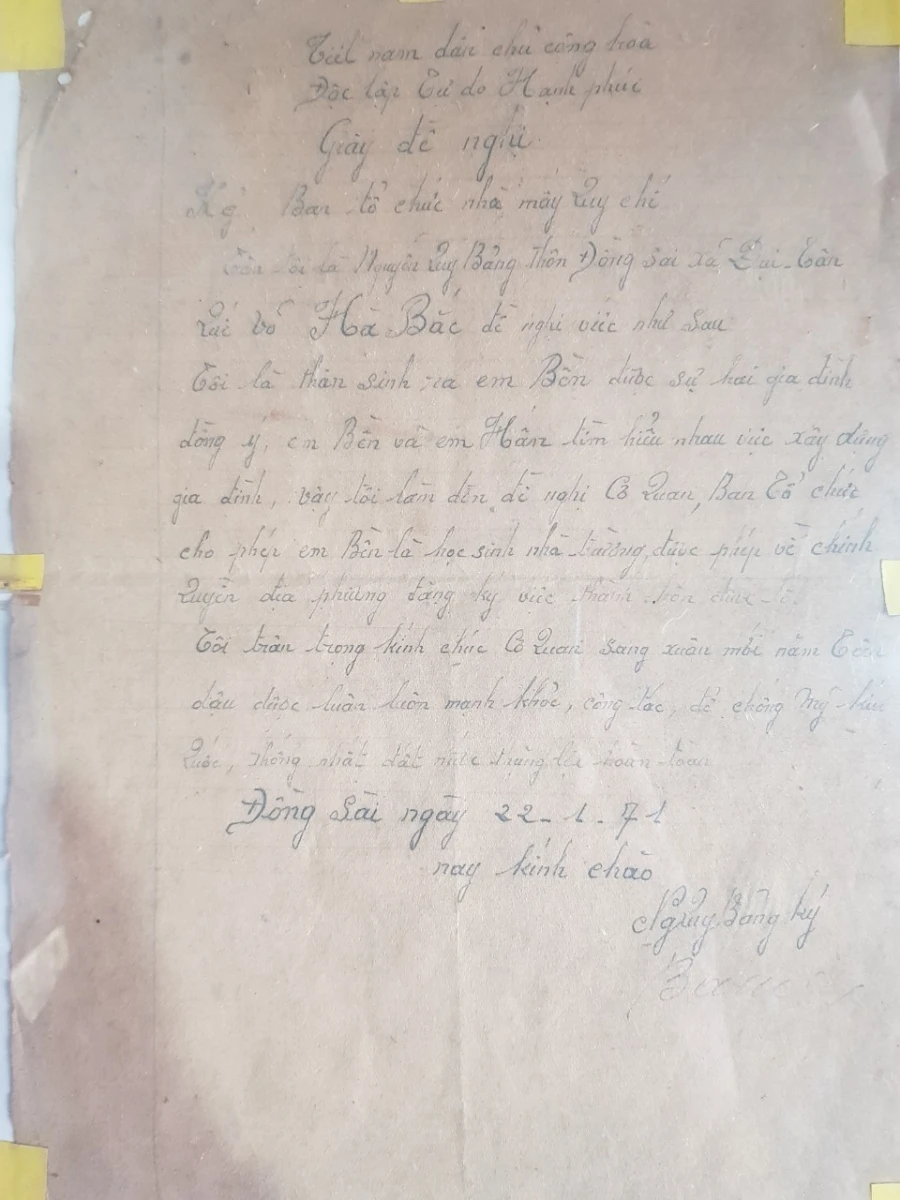 Việt nam dân chủ cộng hoà
Độc lập Tự do Hạnh phúc
Giấy đề nghị
K g Ban tổ chức nhà máy Quy chế
Tên tôi là Nguyễn Quy Bảng thôn Đồng Sài xã Đại Tân
Quế Võ Hà Bắc đề nghị việc như sau
Tôi là thân sinh ra em Bền được sự hai gia đình
đồng ý, em Bền và em Hấn tìm hiểu nhau việc xây dựng
gia đình, vậy tôi làm đơn đề nghị Cơ Quan, Ban Tổ chức
cho phép em Bền là học sinh nhà trường, được phép về chính
Quyền địa phương đăng ký việc thành hôn được
Tôi trân trọng kính chúc Cơ Quan sang xuân mới năm
dậu được luân luôn mạnh khỏe, công tác, để chống Mỹ kíu
Quốc, thống nhất đất nước thắng lợi hoàn toàn
Đồng Sài ngày 22-1-71
nay kính chào
Ngquy Bảng ký